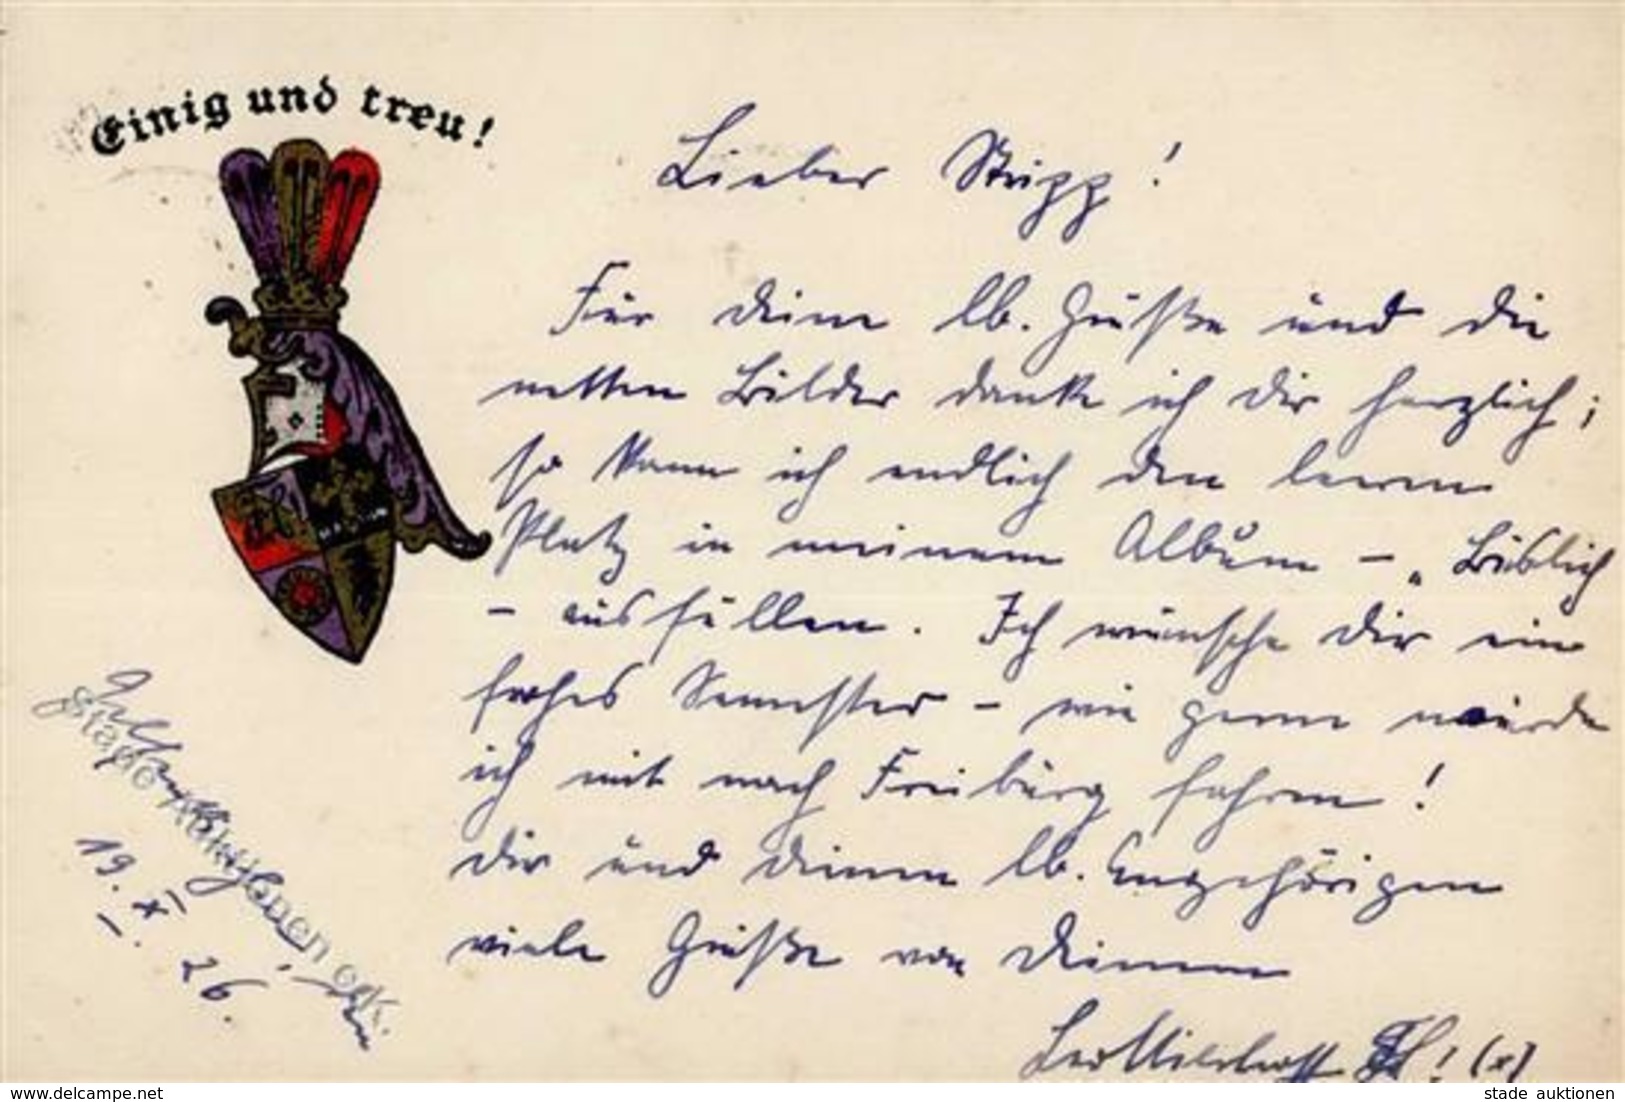 Einig und treu!
Lieber Stripp!
Für deine lb. Grüße und die
netten Bilder danke ich dir herzlich;
so kann ich endlich den leeren
Platz in meinem Album –
– ausfüllen. Ich wünsche dir ein
frohes Semester – wie gerne würde
ich mit nach Freiburg fahren!
Dir und deinen lb. Angehörigen
viele Grüße von Deinem
Leo (x)
den
19. XI. 26.
stade auktionen ork.
www.delcampe.net
stade auktionen